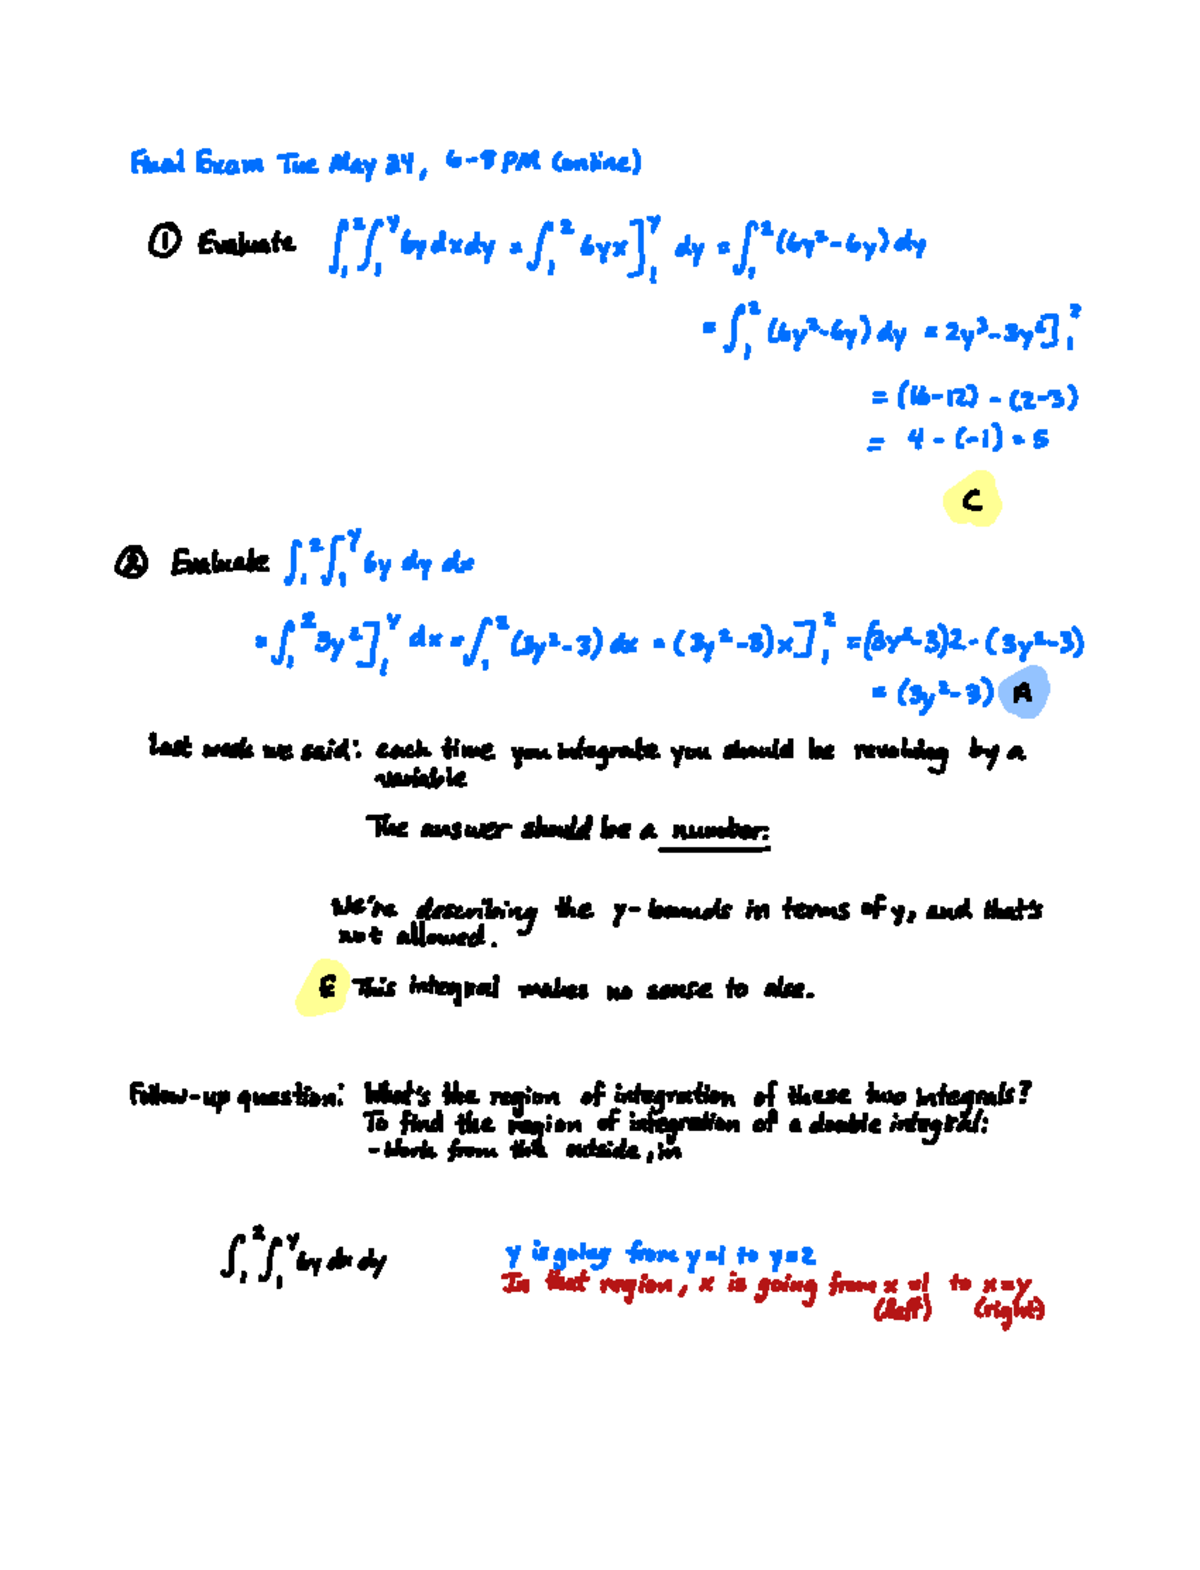 Final Exam Tue May 24, 6-8 PM (online)
① Evaluate ∫₁²∫₁ʸ 6y dx dy = ∫₁² 6yx]₁ʸ dy = ∫₁² (6y²-6y) dy
= ∫₁² (6y²-6y) dy = 2y³-3y²]₁²
= (16-12) - (2-3)
= 4 - (-1) = 5
C
② Evaluate ∫₁²∫₁ʸ 6y dy dx
= ∫₁² 3y²]₁ʸ dx = ∫₁² (3y²-3) dx = (3y²-3)x]₁² = (3y²-3)2 - (3y²-3)
= (3y²-3) A
Last week we said: each time you integrate you should be revolving by a
variable
The answer should be a number:
We're describing the y-bounds in terms of y, and that's
not allowed.
E This integral makes no sense to
Follow-up question: What's the region of integration of these two integrals?
To find the region of integration of a double integral:
- Work from the outside, in
∫₁²∫₁ʸ 6y dx dy y is going from y=1 to y=2
In that region, x is going from x=1 to x=y
(left) (right)